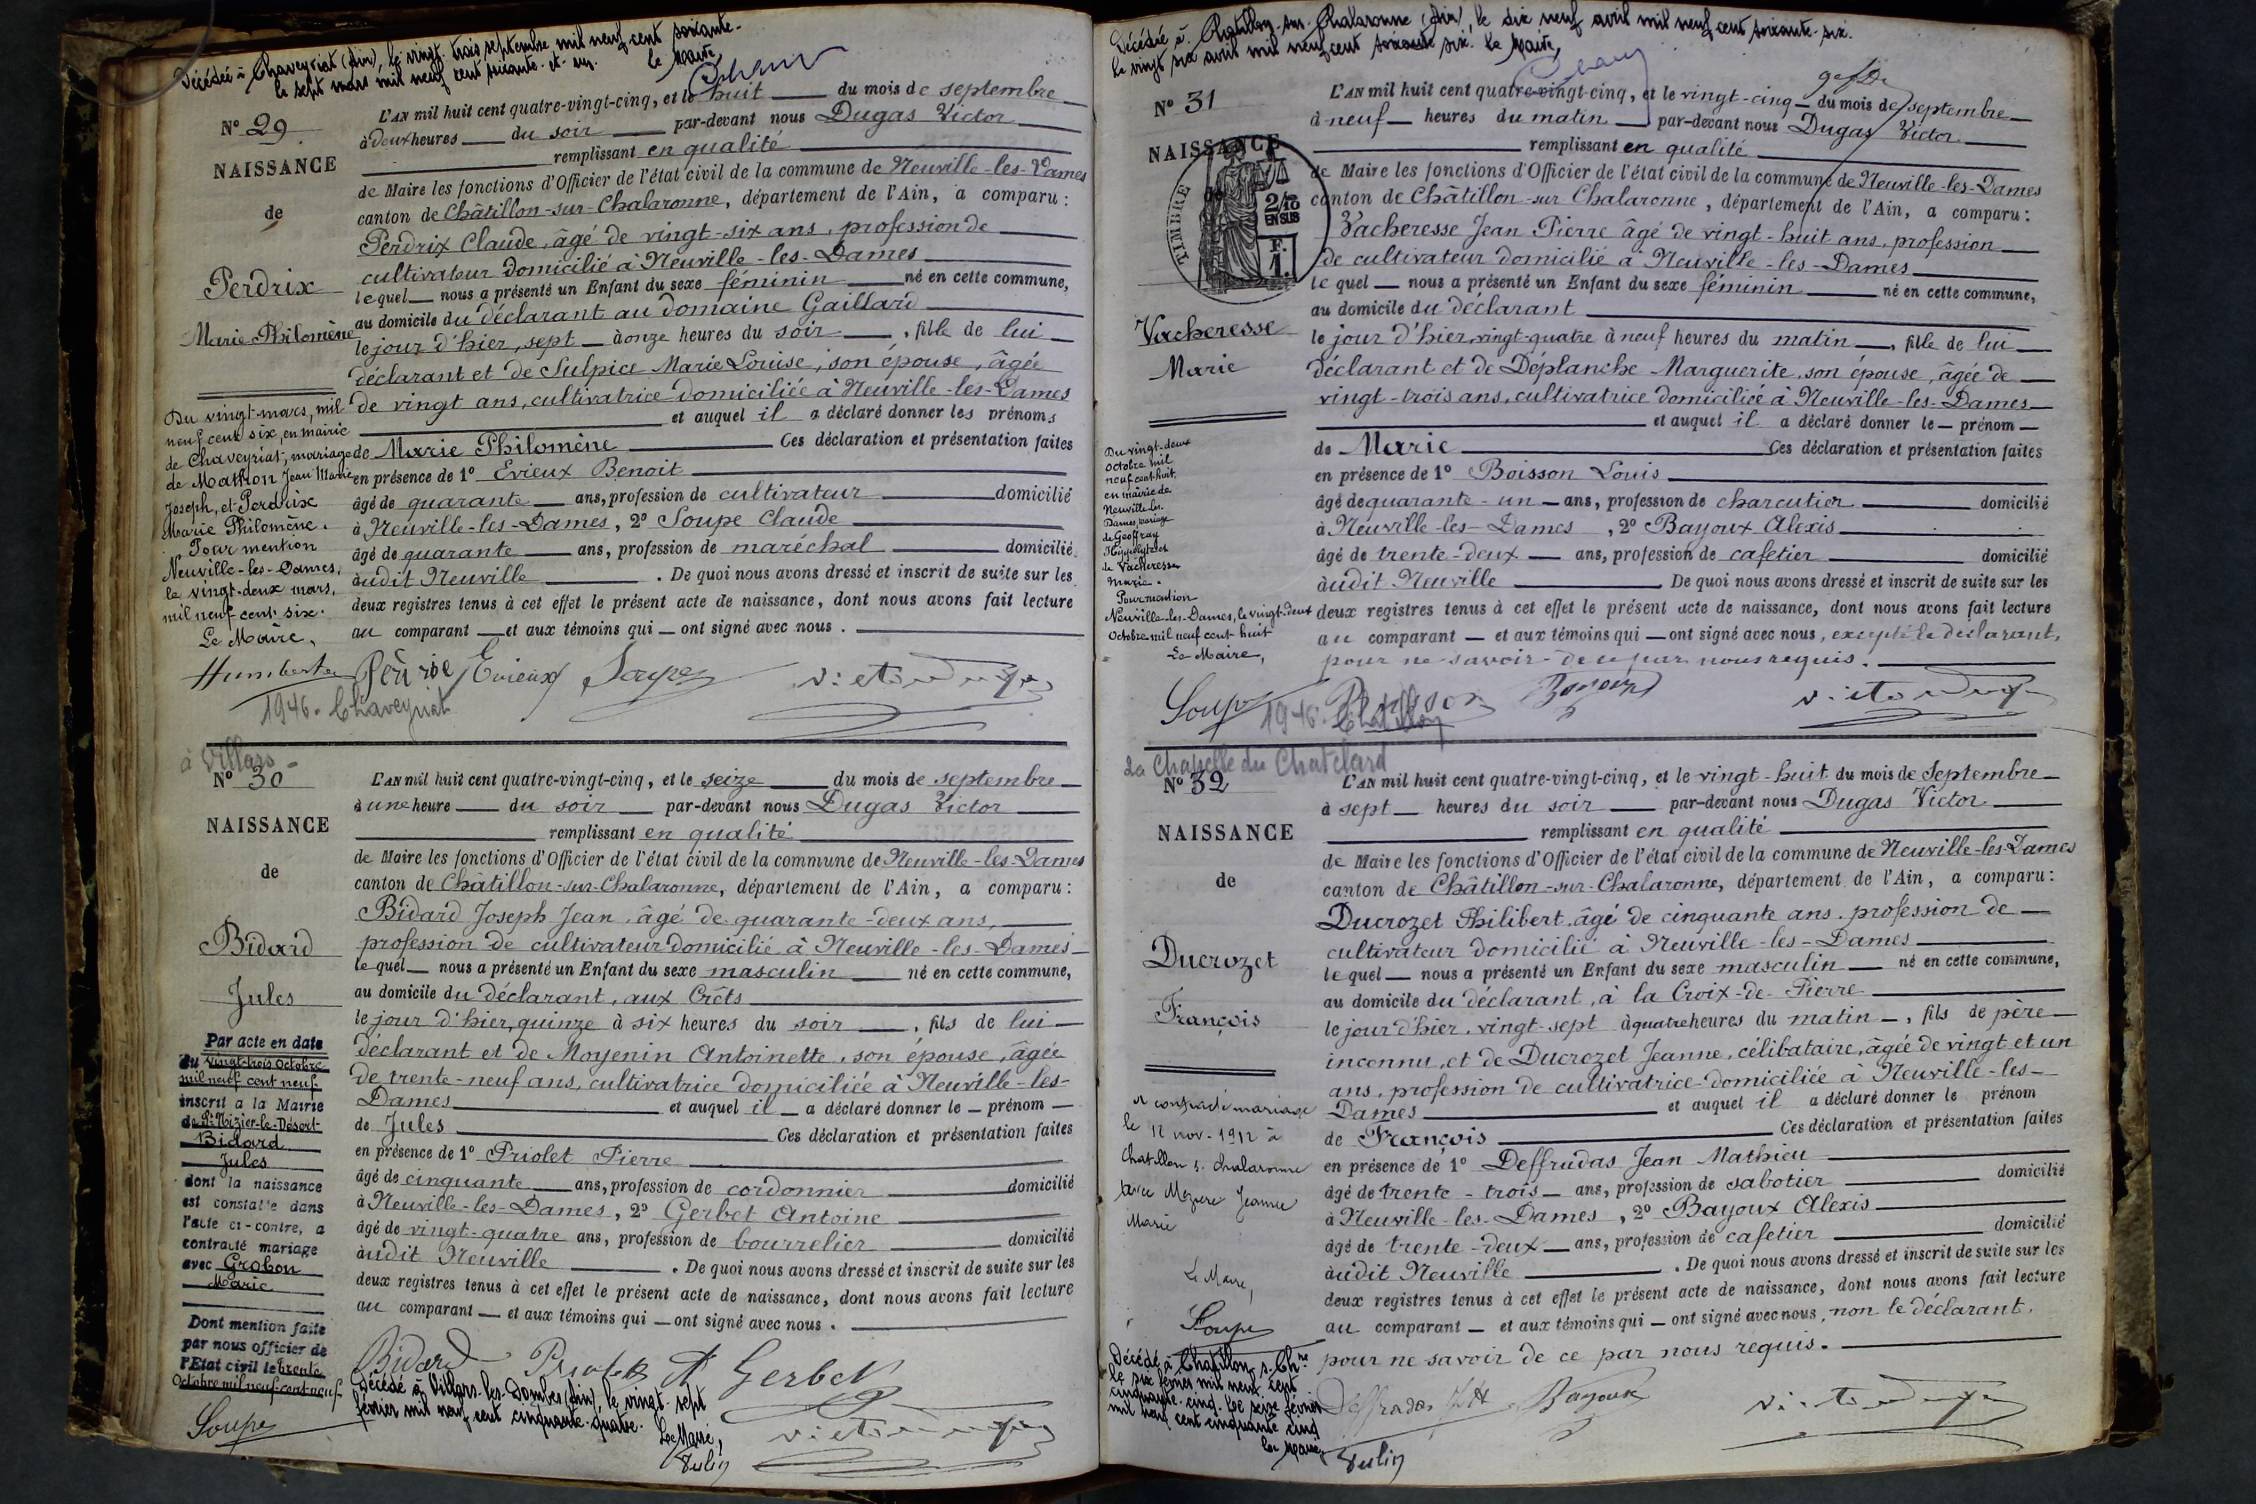 Décédée à Chaveyriat (Ain), le vingt-trois septembre mil neuf cent soixante-
le sept mars mil neuf cent soixante-et-un. le Maire,
L'AN mil huit cent quatre-vingt-cinq, et le huit du mois de septembre
N° 29
à deux heures du soir par-devant nous Dugas Victor
NAISSANCE
remplissant en qualité
de Maire les fonctions d'Officier de l'état civil de la commune de Neuville-les-Dames
de
canton de Châtillon-sur-Chalaronne, département de l'Ain, a comparu :
Perdrix Claude, âgé de vingt-six ans, profession de
cultivateur domicilié à Neuville-les-Dames
Perdrix
lequel nous a présenté un Enfant du sexe féminin né en cette commune,
au domicile du déclarant au domaine Gaillard
Marie Philomène
le jour d'hier, sept à onze heures du soir, fille de lui
déclarant et de Sulpice Marie Louise, son épouse, âgée
de vingt ans, cultivatrice domiciliée à Neuville-les-Dames
et auquel il a déclaré donner les prénoms
de Marie Philomène Ces déclaration et présentation faites
en présence de 1° Evieux Benoit
âgé de quarante ans, profession de cultivateur domicilié
à Neuville-les-Dames, 2° Soupe Claude
âgé de quarante ans, profession de maréchal domicilié
audit Neuville. De quoi nous avons dressé et inscrit de suite sur les
deux registres tenus à cet effet le présent acte de naissance, dont nous avons fait lecture
au comparant et aux témoins qui ont signé avec nous.
Du vingt mars, mil
neuf cent six, en mairie
de Chaveyriat, mariage
de Mathon Jean Marie
Joseph, et Perdrix
Marie Philomène.
Pour mention
Neuville-les-Dames,
le vingt-deux mars,
mil neuf cent six.
Le Maire,
Humbert Evieux Soupe
1946. Chaveyriat
à Villars
N° 30
L'AN mil huit cent quatre-vingt-cinq, et le seize du mois de septembre
à une heure du soir par-devant nous Dugas Victor
NAISSANCE
remplissant en qualité
de Maire les fonctions d'Officier de l'état civil de la commune de Neuville-les-Dames
de
canton de Châtillon-sur-Chalaronne, département de l'Ain, a comparu :
Bidard Joseph Jean, âgé de quarante-deux ans,
Bidard
profession de cultivateur domicilié à Neuville-les-Dames
lequel nous a présenté un Enfant du sexe masculin né en cette commune,
Jules
au domicile du déclarant, aux Crêts
le jour d'hier, quinze à six heures du soir, fils de lui
déclarant et de Moyenin Antoinette, son épouse, âgée
de trente-neuf ans, cultivatrice domiciliée à Neuville-les-
Dames et auquel il a déclaré donner le prénom
de Jules Ces déclaration et présentation faites
en présence de 1° Priolet Pierre
âgé de cinquante ans, profession de cordonnier domicilié
à Neuville-les-Dames, 2° Gerbet Antoine
âgé de vingt-quatre ans, profession de bourrelier domicilié
audit Neuville. De quoi nous avons dressé et inscrit de suite sur les
deux registres tenus à cet effet le présent acte de naissance, dont nous avons fait lecture
au comparant et aux témoins qui ont signé avec nous.
Par acte en date
du vingt-trois Octobre
mil neuf cent neuf
inscrit a la Mairie
de St Nizier-le-Désert
Bidard
Jules
dont la naissance
est constatée dans
l'acte ci-contre, a
contracté mariage
avec Grobon
Marie
Dont mention faite
par nous officier de
l'Etat civil le trente
Octobre mil neuf cent neuf
Soupe
Bidard Priolet A Gerbet
Décédé à Villars-les-Dombes (Ain), le vingt-sept
février mil neuf cent cinquante-quatre.
Le Maire,
Décédée à Châtillon-sur-Chalaronne (Ain), le dix neuf avril mil neuf cent soixante-six.
le vingt six avril mil neuf cent soixante six. Le Maire,
N° 31
L'AN mil huit cent quatre-vingt-cinq, et le vingt-cinq du mois de septembre
à neuf heures du matin par-devant nous Dugas Victor
NAISSANCE
remplissant en qualité
TIMBRE
2/10 EN SUS
F. 1.
de
de Maire les fonctions d'Officier de l'état civil de la commune de Neuville-les-Dames
canton de Châtillon-sur Chalaronne, département de l'Ain, a comparu :
Vacheresse Jean Pierre âgé de vingt-huit ans, profession
de cultivateur domicilié à Neuville-les-Dames
lequel nous a présenté un Enfant du sexe féminin né en cette commune,
au domicile du déclarant
Vacheresse
le jour d'hier, vingt-quatre à neuf heures du matin, fille de lui
Marie
déclarant et de Déplanche Marguerite, son épouse, âgée de
vingt-trois ans, cultivatrice domiciliée à Neuville-les-Dames
et auquel il a déclaré donner le prénom
de Marie Ces déclaration et présentation faites
en présence de 1° Boisson Louis
âgé de quarante-un ans, profession de charcutier domicilié
à Neuville-les-Dames, 2° Bayoux Alexis
âgé de trente-deux ans, profession de cafetier domicilié
audit Neuville De quoi nous avons dressé et inscrit de suite sur les
deux registres tenus à cet effet le présent acte de naissance, dont nous avons fait lecture
au comparant et aux témoins qui ont signé avec nous, excepté le déclarant,
pour ne savoir de ce par nous requis.
Du vingt-deux
octobre mil
neuf cent huit,
en mairie de
Neuville-les-
Dames, mariage
de Geoffray
Hippolyte et
de Vacheresse
Marie.
Pour mention
Neuville-les-Dames, le vingt-deux
Octobre mil neuf cent huit
Le Maire,
Soupe Boisson Bayoux
1946. Chatillon
La Chapelle du Chatelard
N° 32
L'AN mil huit cent quatre-vingt-cinq, et le vingt-huit du mois de Septembre
à sept heures du soir par-devant nous Dugas Victor
NAISSANCE
remplissant en qualité
de Maire les fonctions d'Officier de l'état civil de la commune de Neuville-les-Dames
de
canton de Châtillon-sur-Chalaronne, département de l'Ain, a comparu :
Ducrozet Philibert, âgé de cinquante ans, profession de
cultivateur domicilié à Neuville-les-Dames
Ducrozet
lequel nous a présenté un Enfant du sexe masculin né en cette commune,
au domicile du déclarant, à la Croix-de-Pierre
François
le jour d'hier, vingt-sept à quatre heures du matin, fils de père
inconnu, et de Ducrozet Jeanne, célibataire, âgée de vingt et un
ans, profession de cultivatrice domiciliée à Neuville-les-
Dames et auquel il a déclaré donner le prénom
de François Ces déclaration et présentation faites
en présence de 1° Deffradas Jean Mathieu
âgé de trente-trois ans, profession de sabotier domicilié
à Neuville-les-Dames, 2° Bayoux Alexis
âgé de trente-deux ans, profession de cafetier domicilié
audit Neuville. De quoi nous avons dressé et inscrit de suite sur les
deux registres tenus à cet effet le présent acte de naissance, dont nous avons fait lecture
au comparant et aux témoins qui ont signé avec nous, non le déclarant,
pour ne savoir de ce par nous requis.
A contracté mariage
le 12 nov. 1912 à
Chatillon s. Chalaronne
avec Mozere Jeanne
Marie
Le Maire,
Soupe
Décédé à Chatillon s. Chne
le six février mil neuf cent
cinquante-cinq. Le seize février
mil neuf cent cinquante cinq
Le Maire,
Deffradas Bayoux